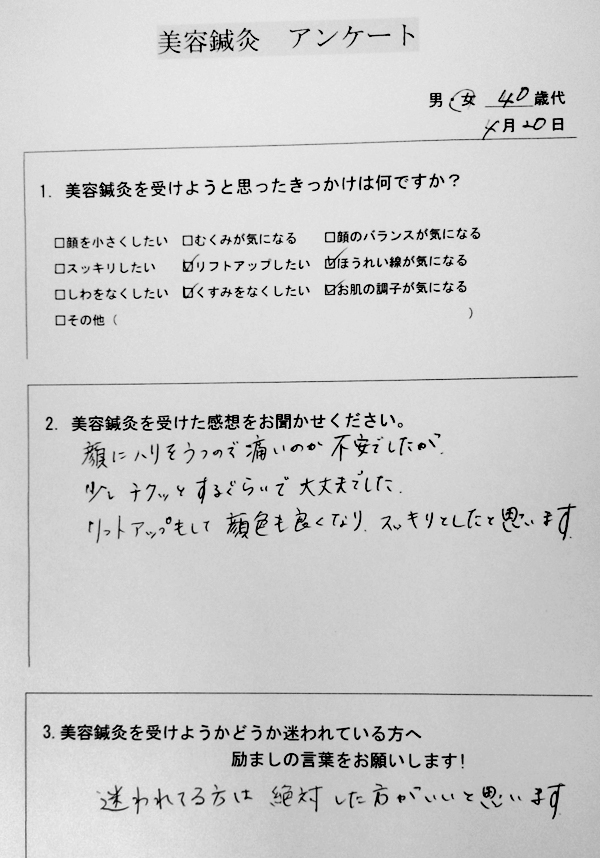 美容鍼灸　アンケート
男・女 40歳代
4月20日
1. 美容鍼灸を受けようと思ったきっかけは何ですか？
□顔を小さくしたい □むくみが気になる □顔のバランスが気になる
□スッキリしたい ☑リフトアップしたい ☑ほうれい線が気になる
□しわをなくしたい ☑くすみをなくしたい ☑お肌の調子が気になる
□その他（　　　　　　　　　　）
2. 美容鍼灸を受けた感想をお聞かせください。
顔にハリをうつので痛いのか 不安でしたが、
少し チクッと するぐらいで 大丈夫でした。
リフトアップもして 顔色も良くなり、スッキリとしたと思います
3.美容鍼灸を受けようかどうか迷われている方へ
励ましの言葉をお願いします！
迷われてる方は 絶対 した方がいいと思います